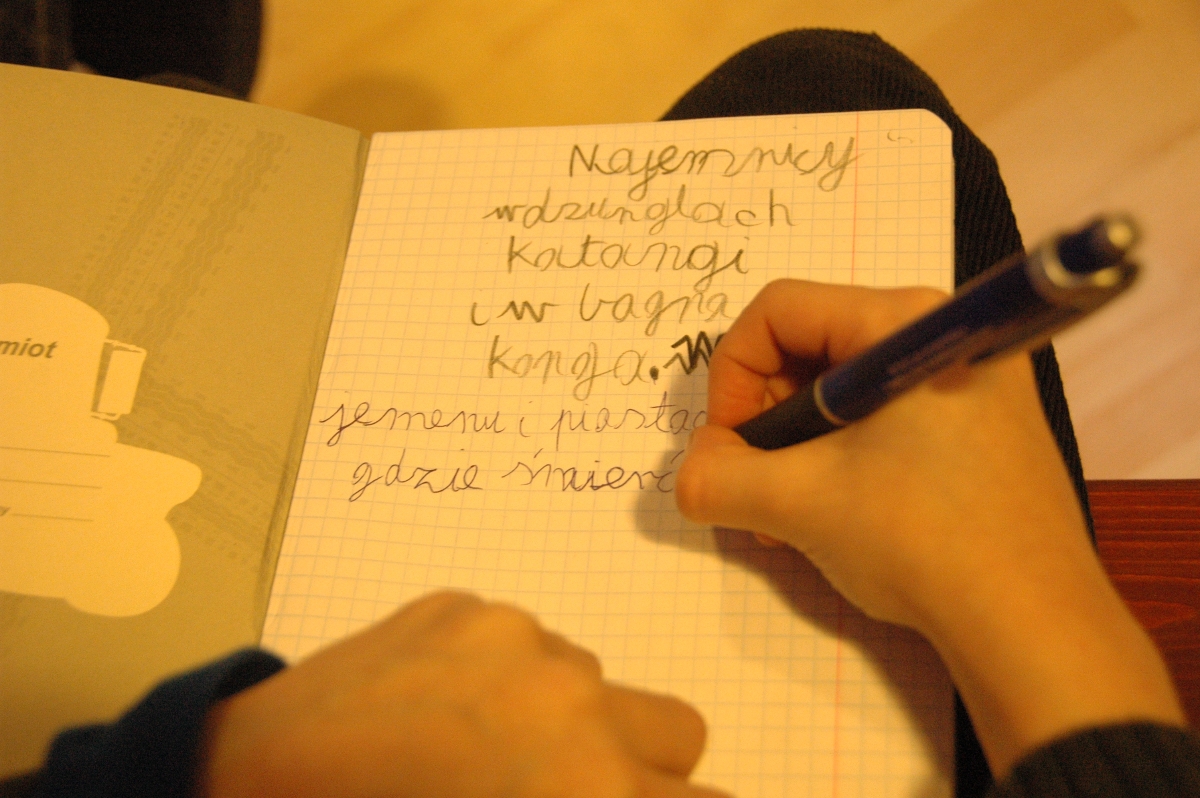 miot
Najemnicy
wdzunglach
Katangi
i w bagna
Konga.
jemenu i piasta
gdzie śmierć